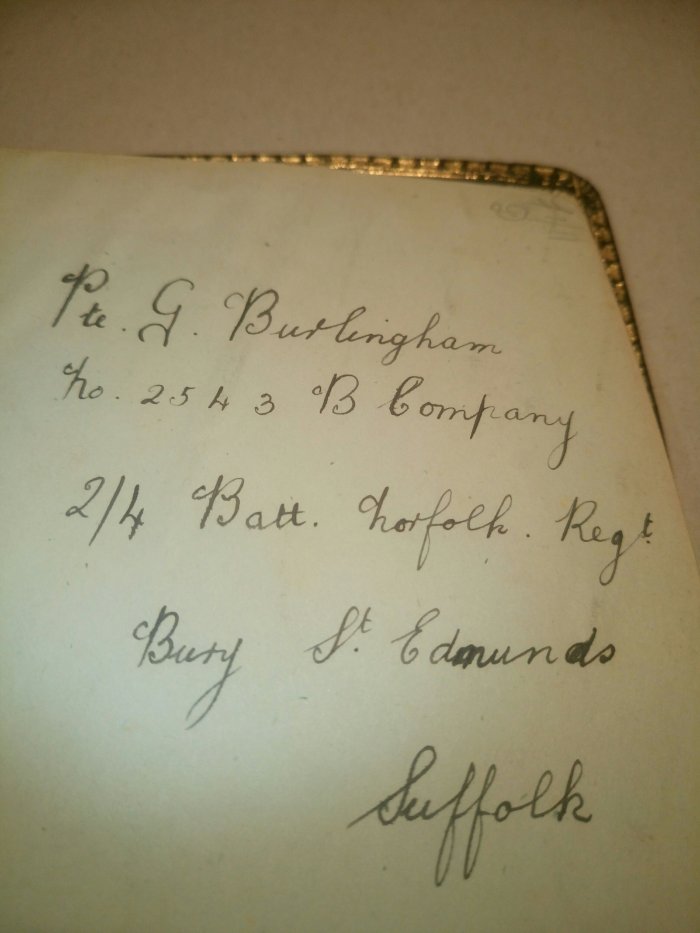 Pte. G. Burlingham
No. 2543 B Company
2/4 Batt. Norfolk. Regt.
Bury St. Edmunds
Suffolk